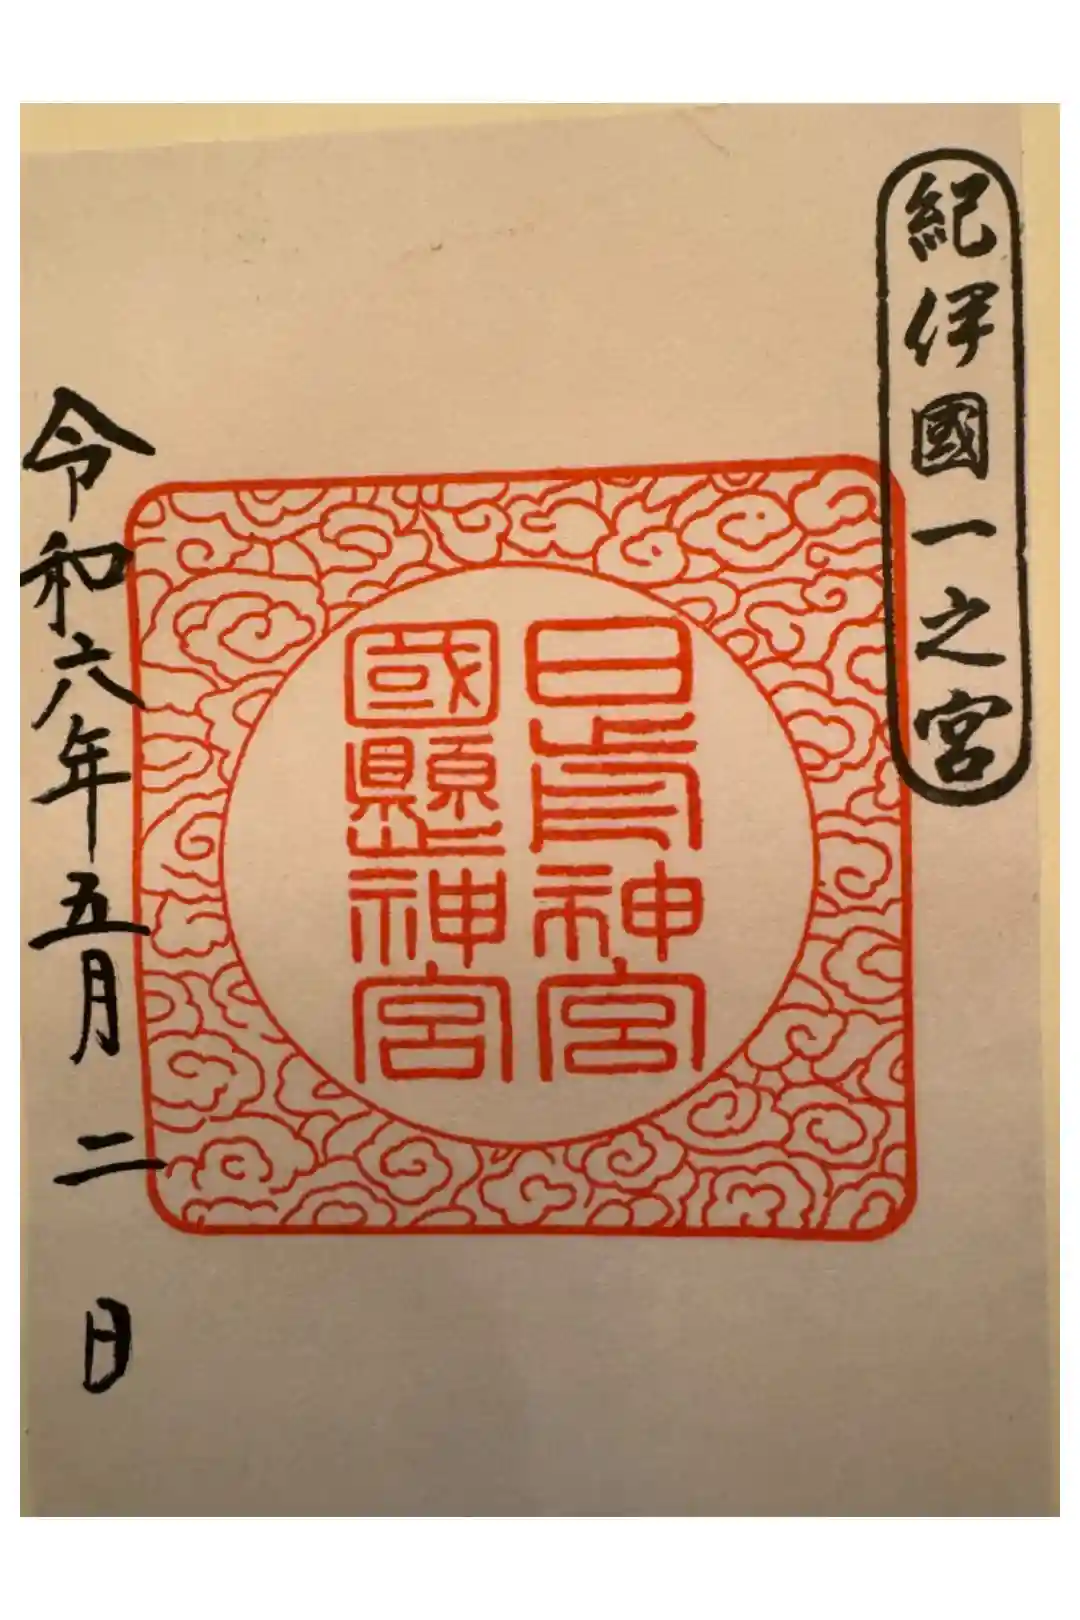 紀伊國一之宮
日前神宮
國懸神宮
令和六年五月二日